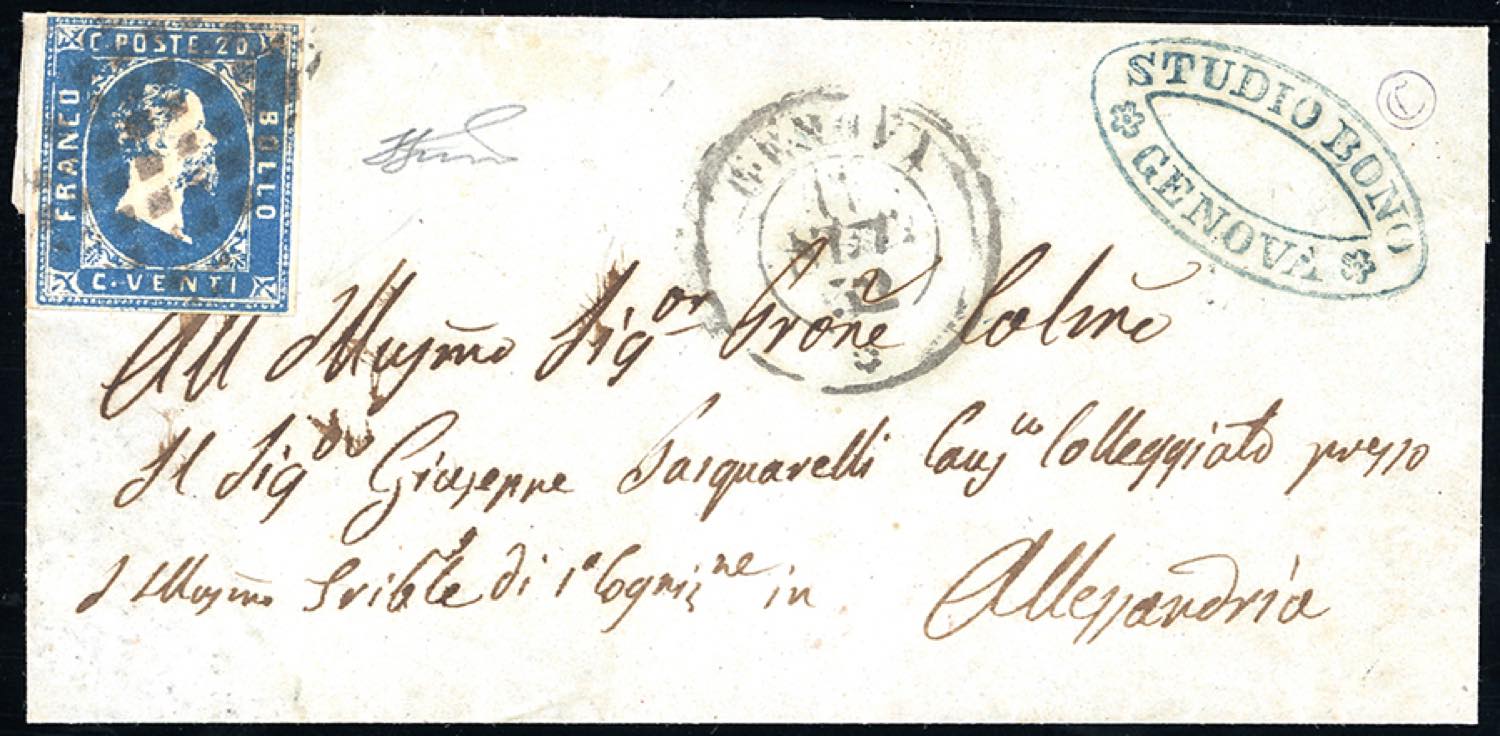 C. POSTE. 20.
FRANCO
BOLLO
C. VENTI
GENOVA
STUDIO BONO
GENOVA
All Illmo Sigor Prone Colmo
Il Sigor Giuseppe Pasquarelli Colleggiato presso
di 1a Cognizne in Alessandria